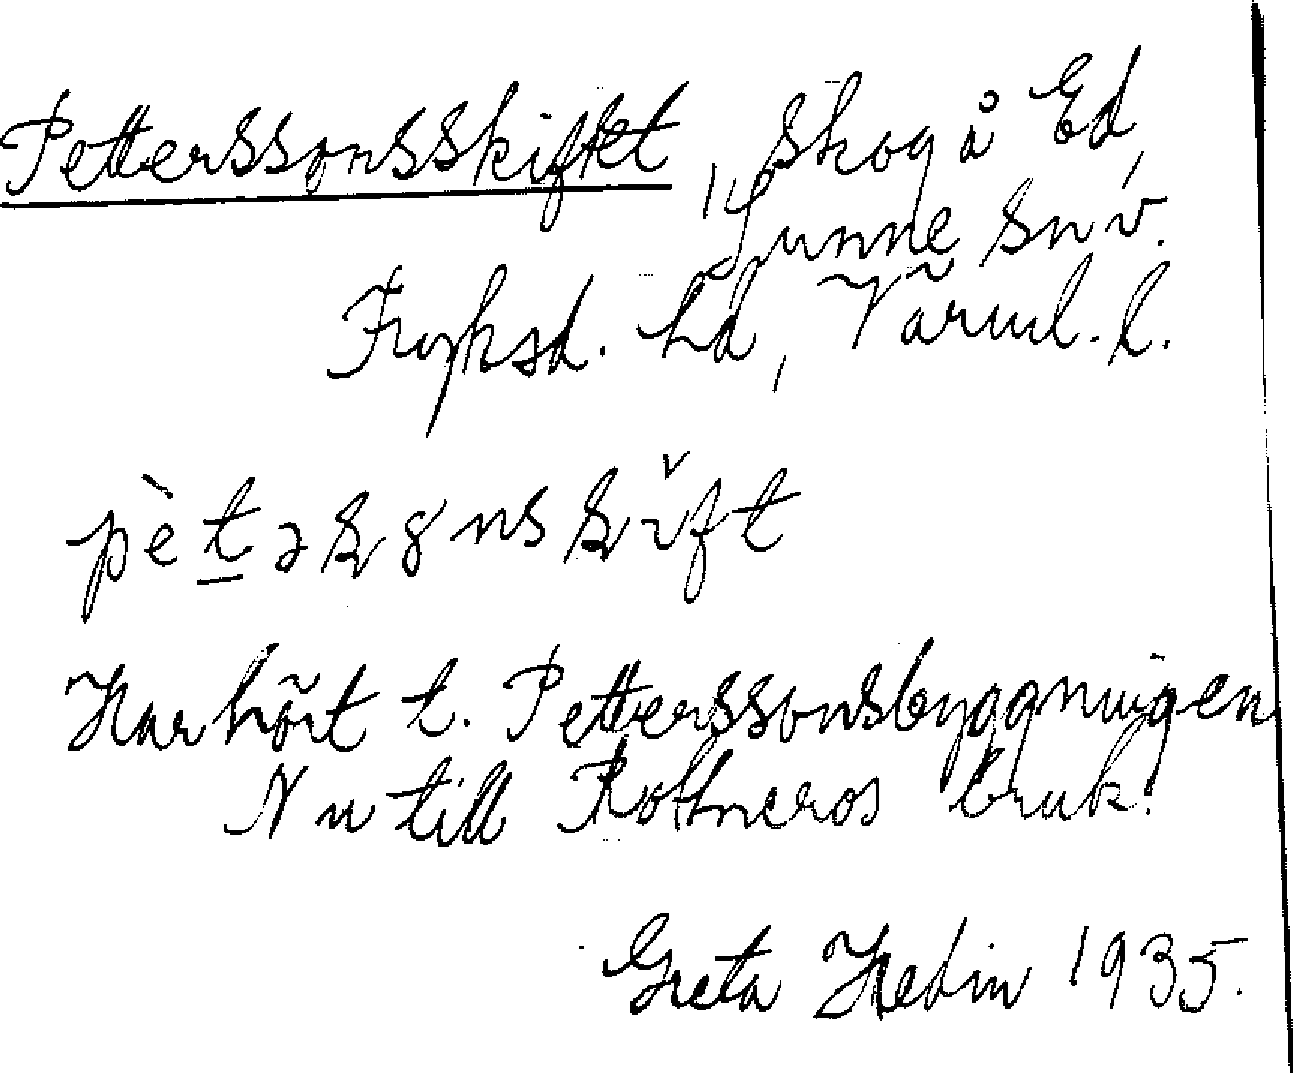 Petterssonsskiftet, skog å Ed,
Sunne sn v.
Fryksd. hd, Värml. l.
Har hört t. Petterssonsbyggningen.
Nu till Rottneros bruk.
Greta Hedin 1935.